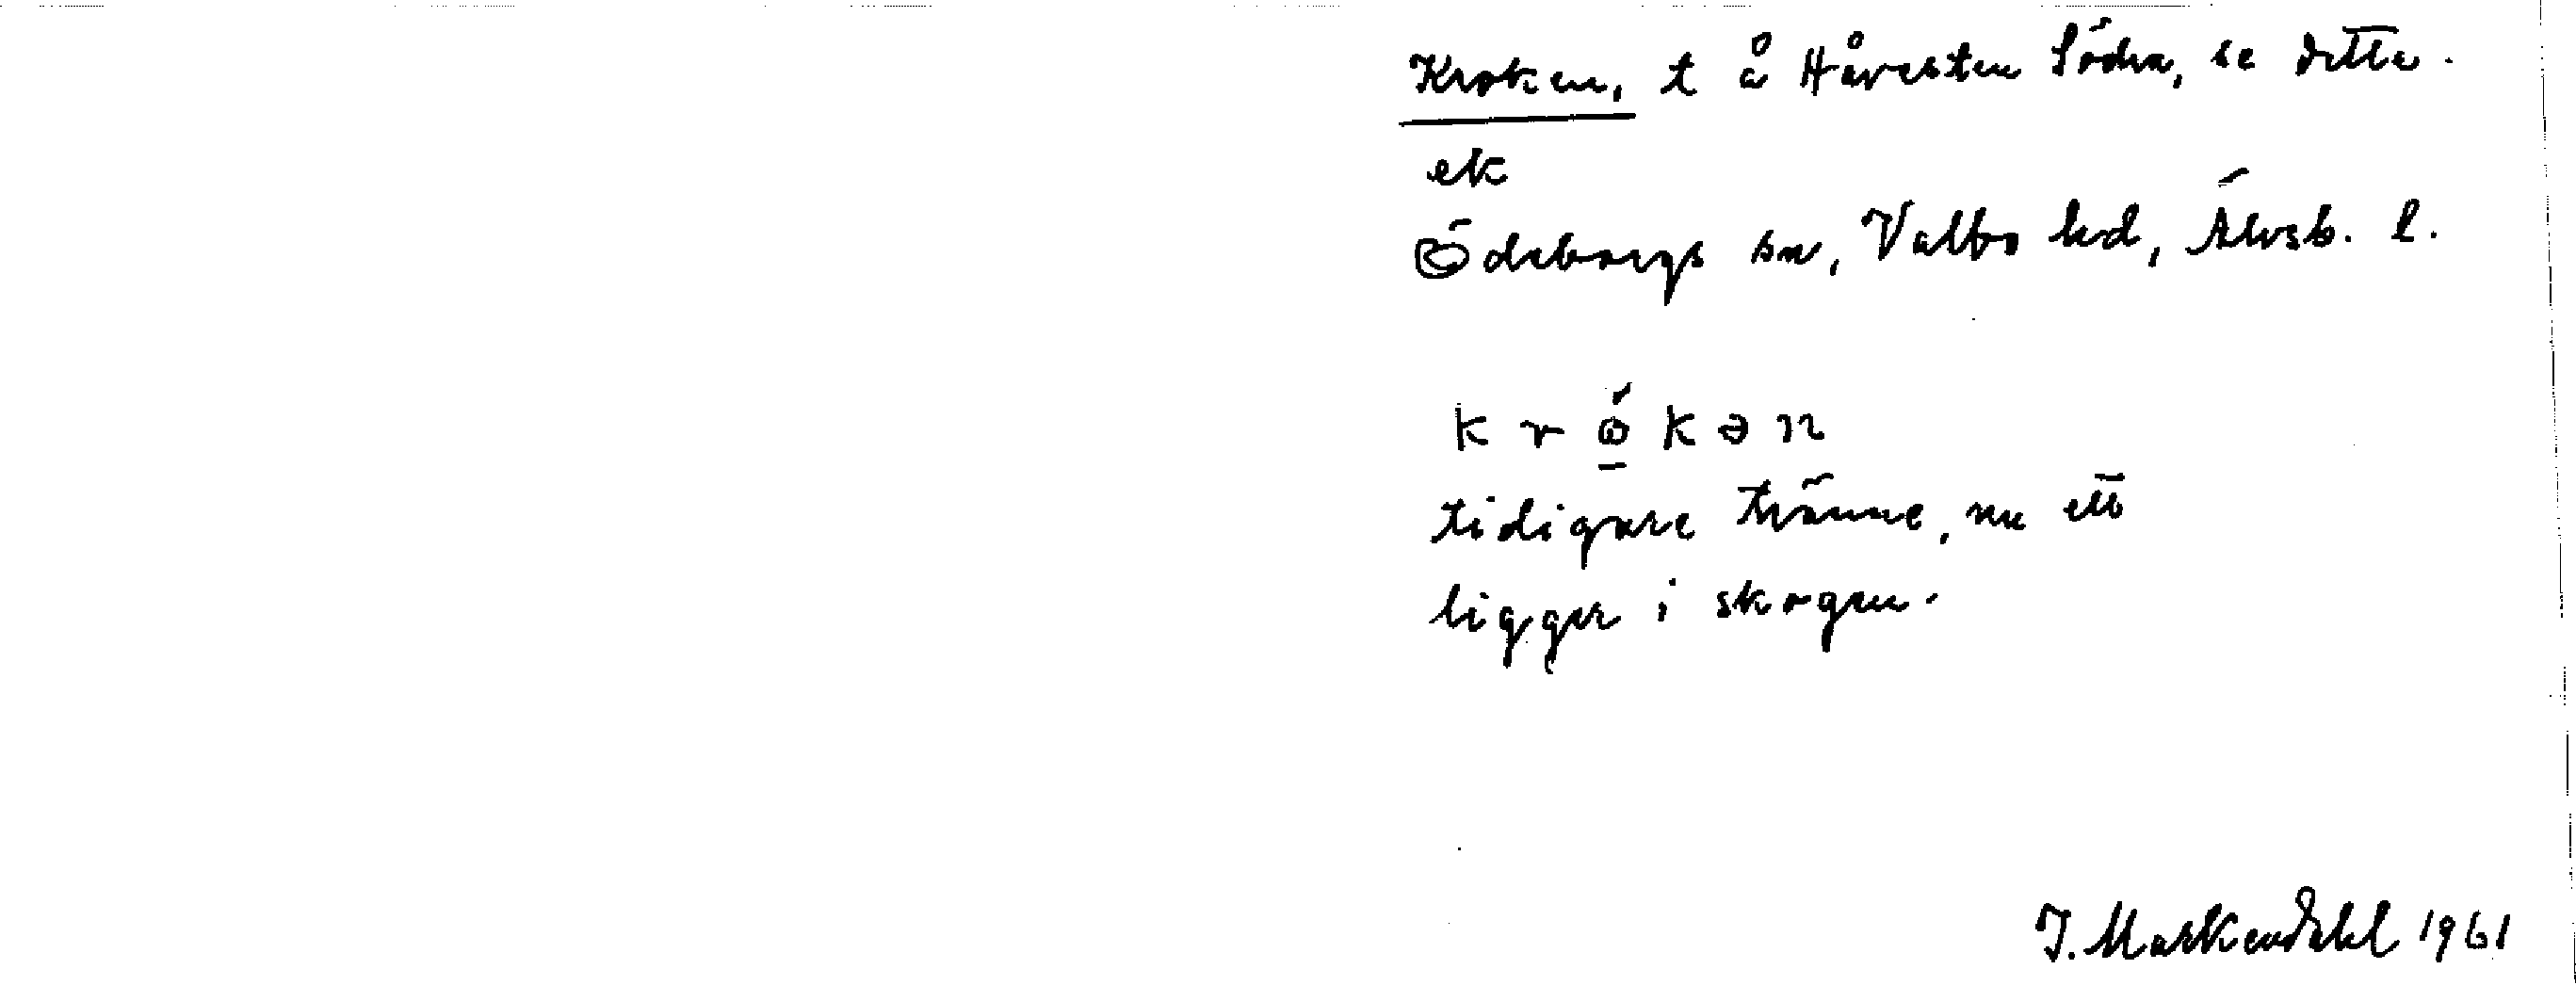 Kroken, t å Håvesten Södra, se detta.
ek
Ödeborgs sn, Valbo hd, Älvsb. l.
k r ó̱ k ə n
tidigare tvänne, nu ett
ligger i skogen.
J. Markendahl 1961